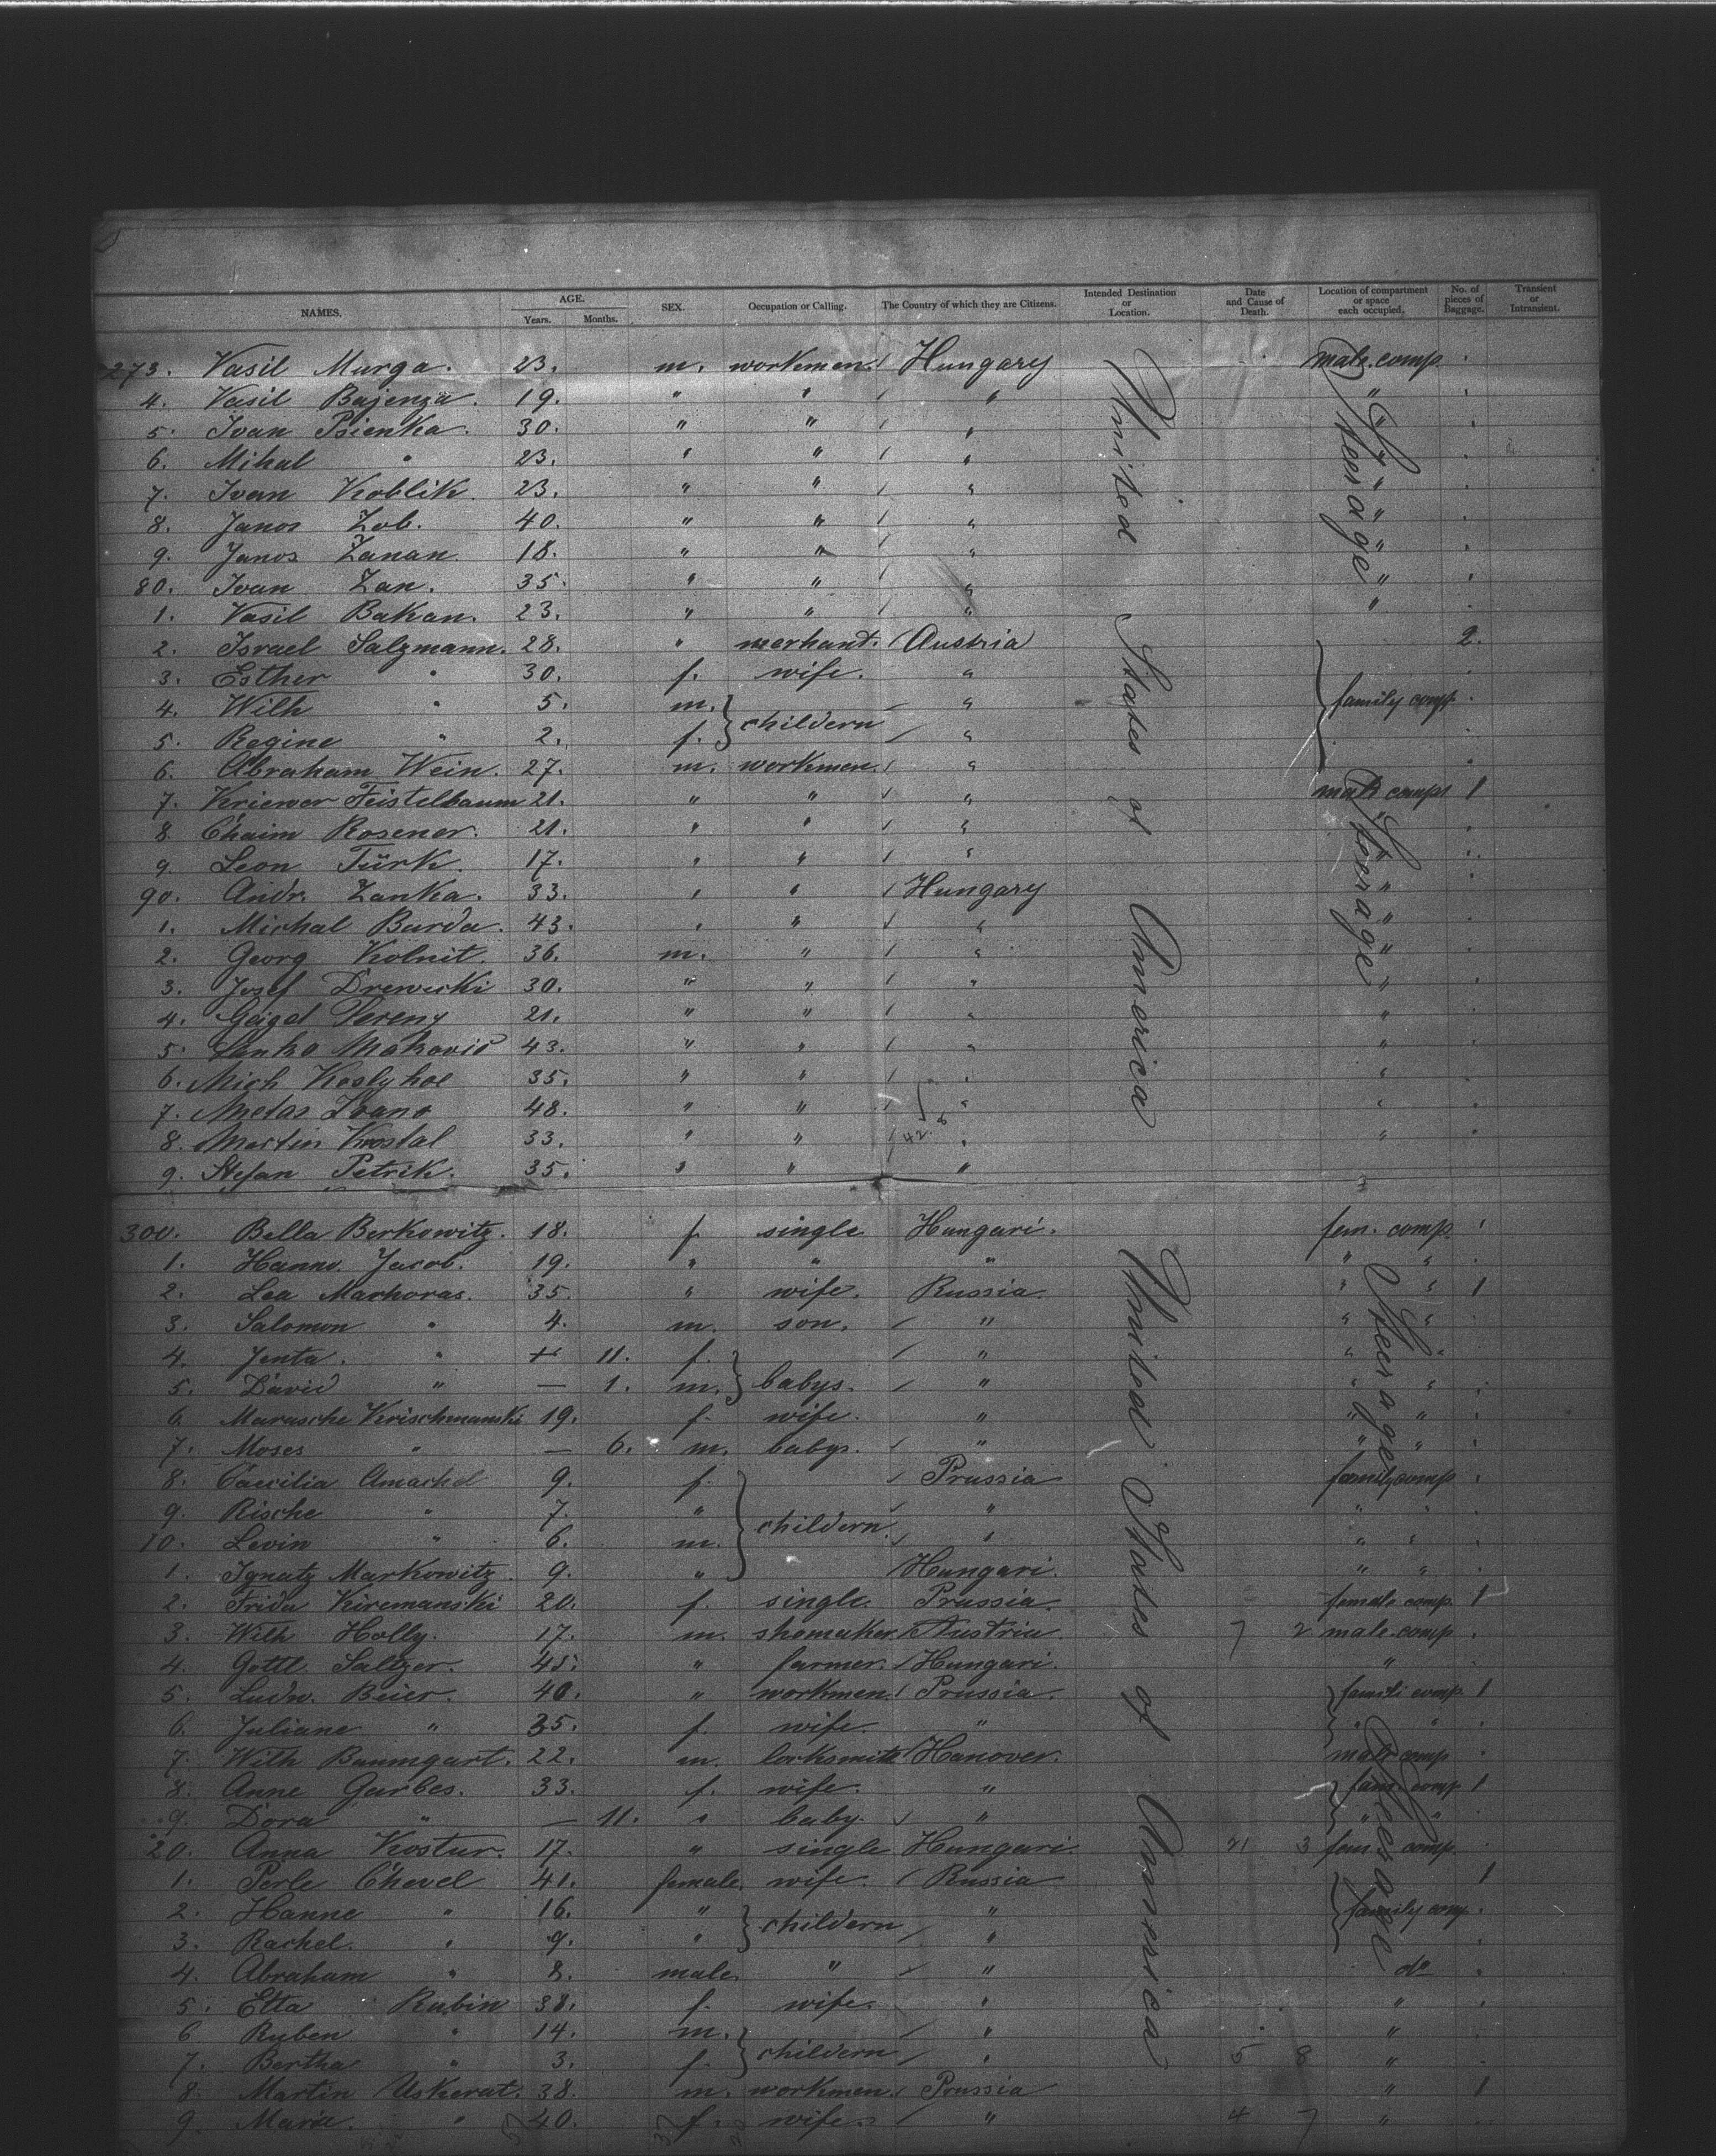 NAMES. AGE. Years. Months. SEX. Occupation or Calling. The Country of which they are Citizens. Intended Destination or Location. Date and Cause of Death. Location of compartment or space each occupied. No. of pieces of Baggage. Transient or Intransient.
273. Vasil Murga. 23. m. workmen. Hungary male. comp.
4. Vasil Bajenza. 19. " " " "
5. Ivan Psienka. 30. " " " "
6. Mihal " 23. " " " "
7. Ivan Koblik. 23. " " " "
8. Janos Zob. 40. " " " "
9. Janos Zanan. 18. " " " "
80. Ivan Zan. 35. " " " "
1. Vasil Bakan. 23. " " " "
2. Israel Salzmann. 28. " merhant. Austria 2.
3. Esther " 30. f. wife. "
4. Wilh " 5. m. } childern " family comp.
5. Regine " 2. f. "
6. Abraham Wein. 27. m. workmen. "
7. Feistelbaum 21. " " " male comp. 1
8. Chaim Rosener. 21. " " "
9. Leon Türk. 17. " " " "
90. Andr. Zanka. 33. " " Hungary "
1. Michal Burda. 43. " " " "
2. Georg Kolnit. 36. m. " " "
3. Josef Drewicki 30. " " " "
4. 21. " " " "
5. 43. " " " "
6. Mich 35. " " " "
7. Metas Ivano 48. " " " "
8. Martin Krostal 33. " " " "
9. Stefan Petrik. 35. " " "
United States of America
Steerage
Steerage
300. Bella Berkowitz. 18. f. single Hungari. fem. comp.
1. Hanno. Jacob. 19. " " " " "
2. Lea Marhoras. 35. " wife. Russia. " " 1
3. Salomon " 4. m. son. " " "
4. Jenta. " 11. f. " " "
5. David " — 1. m. } babys. " " "
6. Marusche Krischmanski 19. f. wife. " " "
7. Moses " — 6. m. babys. " " "
8. Caecilia Amackel 9. f. Prussia family comp
9. Rische " 7. " " " "
10. Levin " 6. m. } childern. " " "
1. Ignatz Markowitz. 9. " Hungari. " "
2. Frida Kiremanski 20. f. single. Prussia. female. comp. 1
3. Wilh Holly. 17. m. shomaker. Austria. 7 2 male. comp.
4. Gottl. Saltzer. 45. " farmer. Hungari. "
5. Ludw. Beier. 40. " workmen. Prussia. famili comp. 1
6. Juliane " 35. f. wife. " " "
7. Wilh Baumgart. 22. m. locksmith Hanover. male comp
8. Anne Garbes. 33. f. wife. " fam. comp. 1
9. Dora " — 11. " baby. " " "
20. Anna Kostur. 17. " single Hungari. 21 3 fem. comp.
1. Perle Chevel 41. female. wife. Russia 1
2. Hanne " 16. " } childern " family comp.
3. Rachel. " 9. " "
4. Abraham " 8. male. " " do
5. Etta Rubin 38. f. wife. " "
6. Ruben " 14. m. " "
7. Bertha " 3. f. } childern " 5 8 "
8. Martin Uskerat. 38. m. workmen. Prussia " 1
9. Maria. " 40. f. wife. " 4 7 "
United States of America
Steerage
Steerage